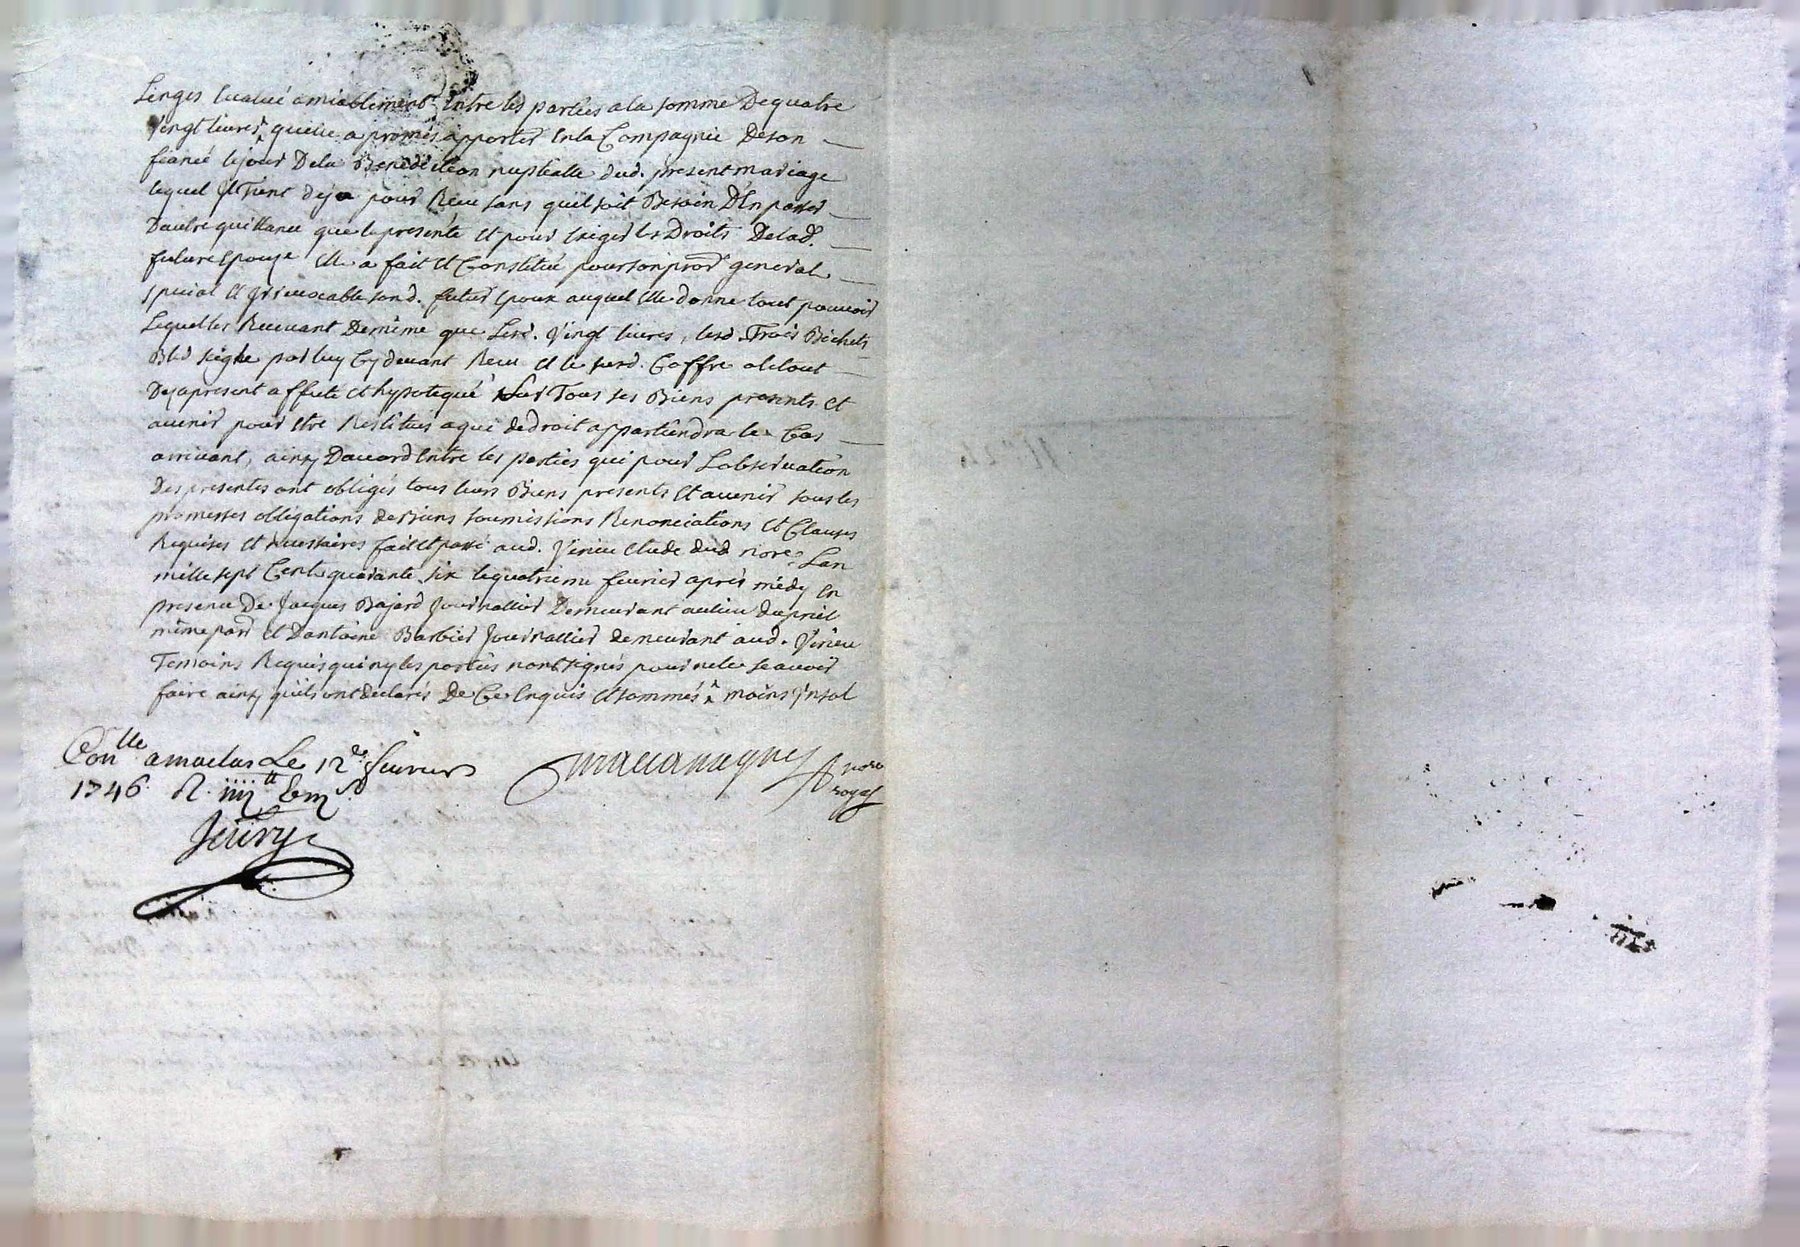 Linges Evalué amiablement Entre les parties a la somme De quatre
Vingt livres quelle a promis apporter En la Compagnie De son
fiancé le jour De la Benediction nuptialle dud. present mariage
lequel Il Tient deja pour Receu sans quil soit Besoin D'En passer
Dautre quittance que le presente Et pour Exiger les Droits De lad.
future Epouze Elle a fait Et Constitué pour son pror general
special Et Irrevocable sond. futur Epoux auquel Elle donne tout pouvoir
Lequel les Recevant De même que Lesd. Vingt livres, lesd. Trois Bichets
Bled seigle par luy Cy devant Receu Et le susd. Coffre a le tout
Des a present affecté Et hypotequé Sur Tous ses Biens presents Et
avenir pour Etre Restitués a qui de droit appartiendra le Cas
arrivant, ainsy D'accord Entre les parties qui pour Lobservation
Des presentes ont obligés tous leurs Biens presents Et avenir sous les
promesses obligations de Biens soumissions Renonciations Et Clauses
Requises Et necessaires fait Et passé aud. Virieu Etude dud nore. Lan
mille sept Cent quarante six le quatrieme fevrier après midy En
presence De Jacques Bajard Journallier Demeurant au lieu du priel
même parr Et Dantoine Barbier Journallier demeurant aud. Virieu
Temoins Requis qui ny les parties nont signés pour ne le scavoir
faire ainsy quils ont declarés De Ce Enquis Et sommés moins Insol
Conlle a maclas Le 12e fevrier
1746. R.
nore
royal